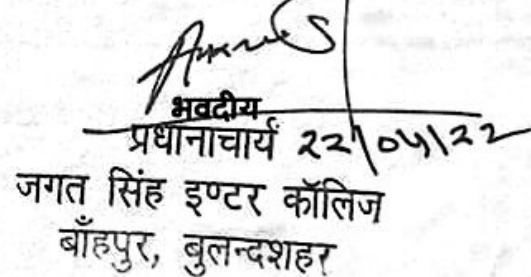 भवदीय
प्रधानाचार्य 22/04/22
जगत सिंह इण्टर कॉलिज
बाँहपुर, बुलन्दशहर